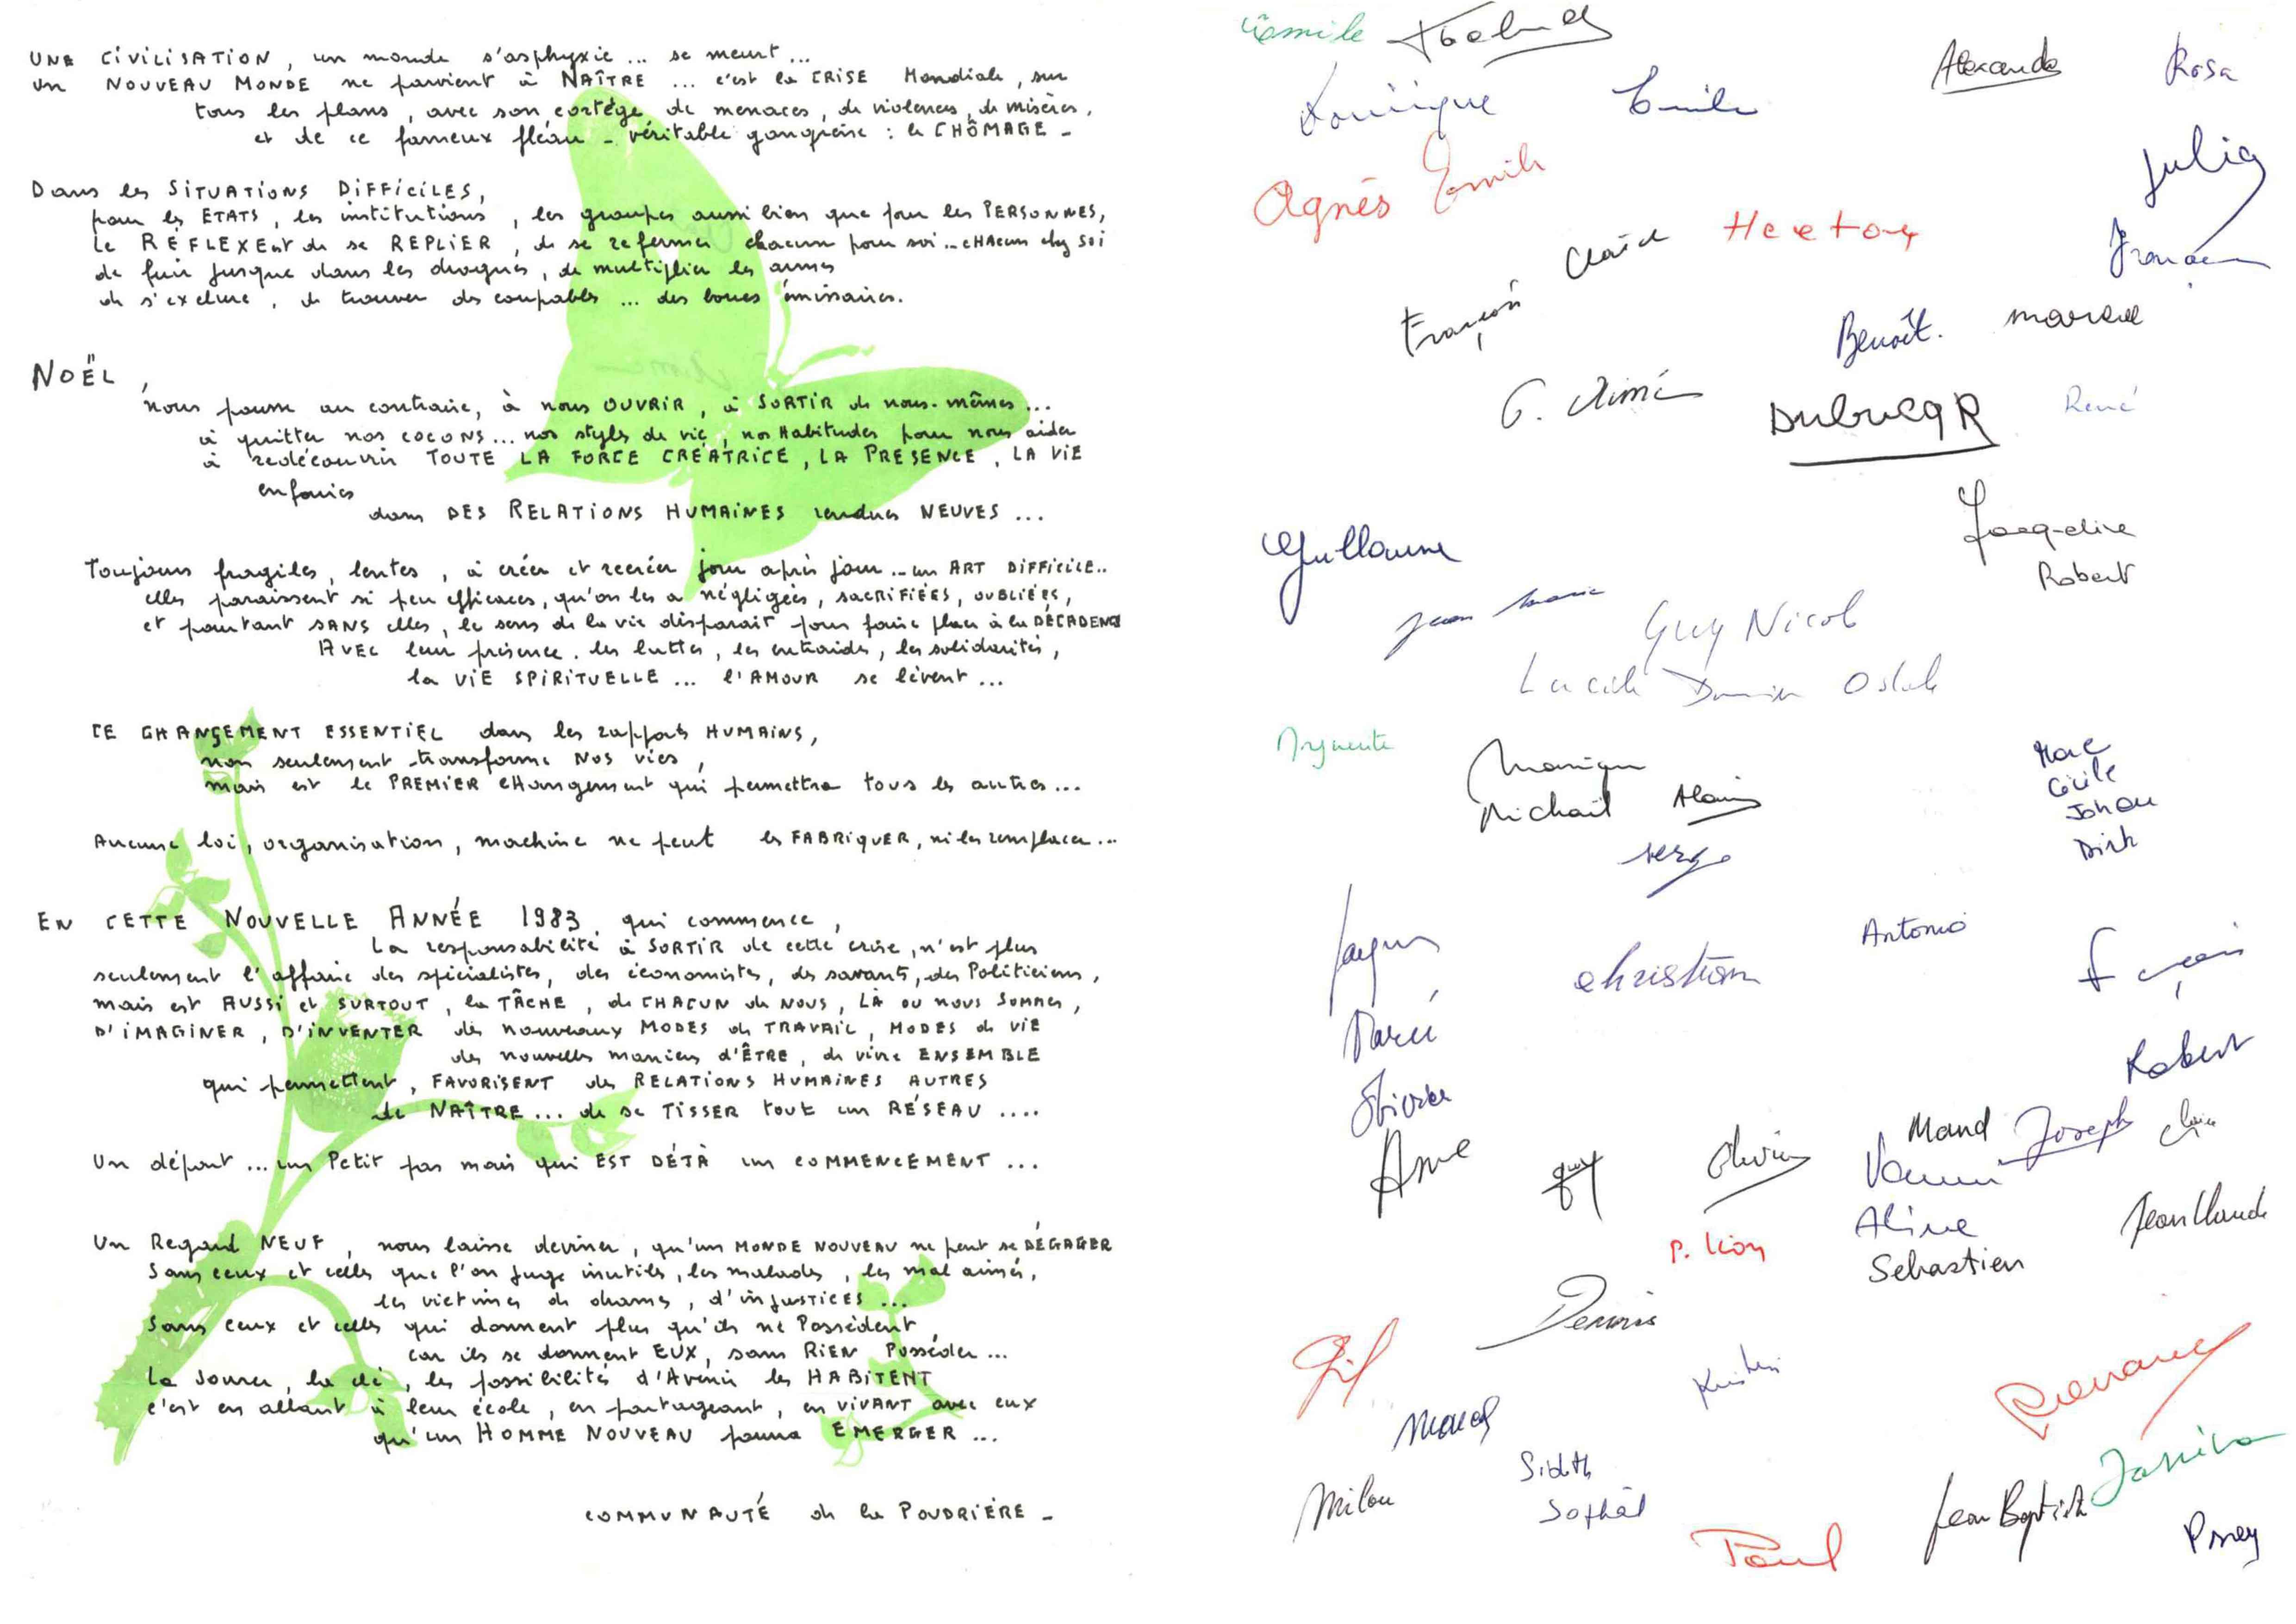 UNE CIVILISATION, un monde s'asphyxie ... se meurt ...
un NOUVEAU MONDE ne parvient à NAÎTRE ... c'est la CRISE Mondiale, sur
tous les plans, avec son cortège de menaces, de violences, de misères,
et de ce fameux fléau - véritable gangrène : le CHÔMAGE -
Dans les SITUATIONS DIFFICILES,
pour les ETATS, les institutions, les groupes aussi bien que pour les PERSONNES,
Le RÉFLEXE est de se REPLIER, de se refermer chacun pour soi... CHAcun chez soi
de fuir jusque dans les drogues, de multiplier les armes
de s'exclure, de trouver des coupables ... des boucs émissaires.
NOËL,
nous pousse au contraire, à nous OUVRIR, à SORTIR de nous-mêmes ...
à quitter nos COCONS... nos styles de vie, nos Habitudes pour nous aider
à redécouvrir TOUTE LA FORCE CRÉATRICE, LA PRÉSENCE, LA VIE
enfouies
dans DES RELATIONS HUMAINES rendues NEUVES ...
Toujours fragiles, lentes, à créer et recréer jour après jour ... un ART DIFFICILE..
elles paraissent si peu efficaces, qu'on les a négligées, SACRIFIÉES, OUBLIÉES,
et pourtant SANS elles, le sens de la vie disparaît pour faire place à la DÉCADENCE
AVEC leur présence, les luttes, les entraides, les solidarités,
la VIE SPIRITUELLE ... l'AMOUR se lèvent ...
CE CHANGEMENT ESSENTIEL dans les rapports HUMAINS,
non seulement transforme NOS vies,
mais est le PREMIER CHangement qui permettra tous les autres ...
Aucune loi, organisation, machine ne peut les FABRIQUER, ni les remplacer ...
EN CETTE NOUVELLE ANNÉE 1983, qui commence,
La responsabilité à SORTIR de cette crise, n'est plus
seulement l'affaire des spécialistes, des économistes, des savants, des Politiciens,
mais est AUSSI et SURTOUT, la TÂCHE, de CHACUN de NOUS, LÀ où nous SOMMES,
D'IMAGINER, D'INVENTER des nouveaux MODES de TRAVAIL, MODES de VIE
des nouvelles manières d'ÊTRE, de vivre ENSEMBLE
qui permettent, FAVORISENT des RELATIONS HUMAINES AUTRES
de NAÎTRE... de se TISSER tout un RÉSEAU ....
Un départ ... un Petit pas mais qui EST DÉJÀ un COMMENCEMENT ...
Un Regard NEUF, nous laisse deviner, qu'un MONDE NOUVEAU ne peut se DÉGAGER
Sans ceux et celles que l'on juge inutiles, les malades, les mal aimés,
les victimes de drames, d'injustices ...
Sans ceux et celles qui donnent plus qu'ils ne Possèdent,
car ils se donnent EUX, sans RIEN Posséder ...
La source, la clé, les possibilités d'Avenir les HABITENT
c'est en allant à leur école, en partageant, en VIVANT avec eux
qu'un HOMME NOUVEAU pourra EMERGER ...
COMMUNAUTÉ de la POUDRIÈRE -
Emile
Alexandre Rosa
Dominique Emile
Julia
Agnès Emile
Hector
Claire
François
Benoît. Marcel
G. Aimé DUBUCQ R René
Guillaume
Jacqueline
Robert
Jean Marie
Guy Nicole
Lucile Damien
Monique
Michaël Alain
Serge
Marc
Cécile
Johan
Dirk
Jacques Christian Antonio François
Robert
Olivier
Anne Guy Olivier
Maud Joseph Claire
Aline
Sebastien
Jean Claude
P. Léon
Dennis
Gil
Marcel
Milou
Sidoth
Sophal
Janina
Jean Baptiste
Paul